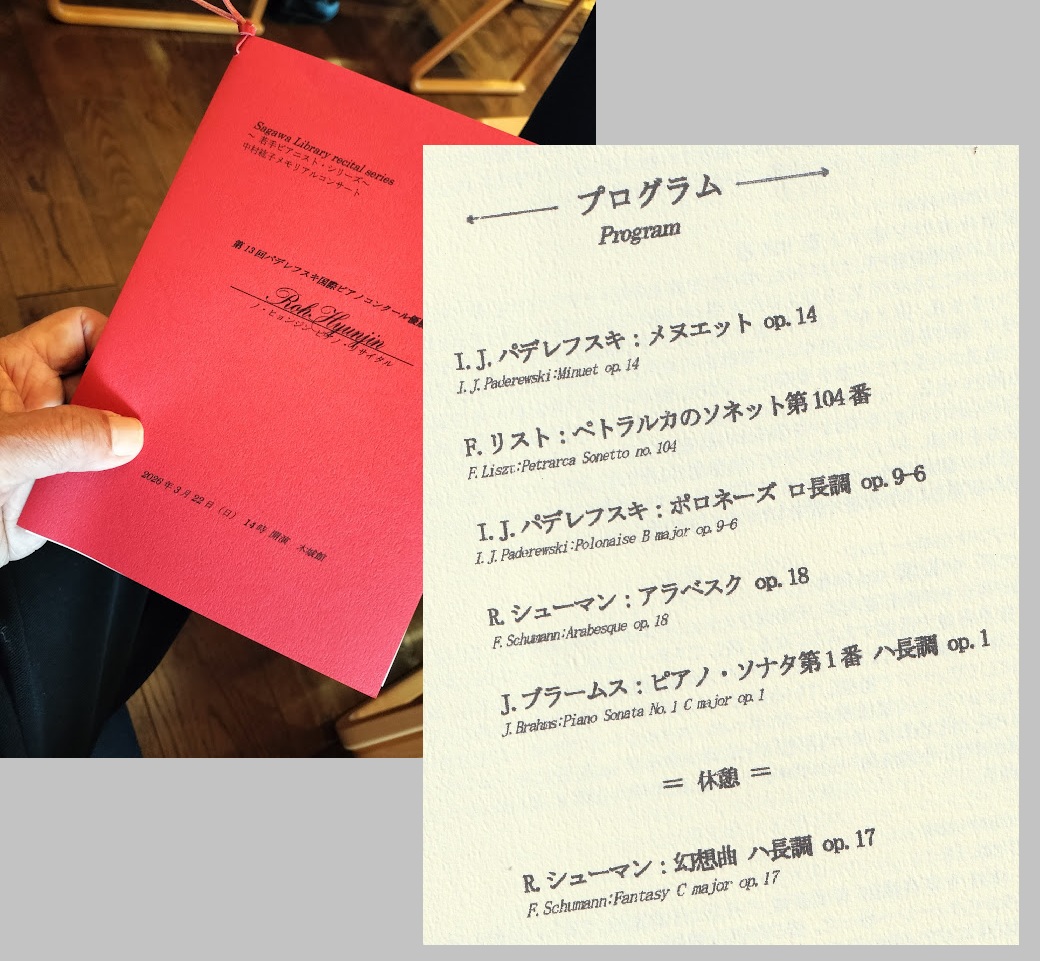 Sagawa Library recital series
～ 若手ピアニスト・シリーズ～
中村紘子メモリアルコンサート
第13回パデレフスキ国際ピアノコンクール優勝
Roh Hyunjin
ノ・ヒョンジン ピアノ・リサイタル
2026年3月22日（日） 14時 開演
プログラム
Program
I. J. パデレフスキ：メヌエット op. 14
I. J. Paderewski:Minuet op. 14
F. リスト：ペトラルカのソネット第104番
F. Liszt:Petrarca Sonetto no. 104
I. J. パデレフスキ：ポロネーズ ロ長調 op. 9-6
I. J. Paderewski:Polonaise B major op. 9-6
R. シューマン：アラベスク op. 18
F. Schumann:Arabesque op. 18
J. ブラームス：ピアノ・ソナタ第1番 ハ長調 op. 1
J. Brahms:Piano Sonata No. 1 C major op. 1
＝ 休憩 ＝
R. シューマン：幻想曲 ハ長調 op. 17
F. Schumann:Fantasy C major op. 17